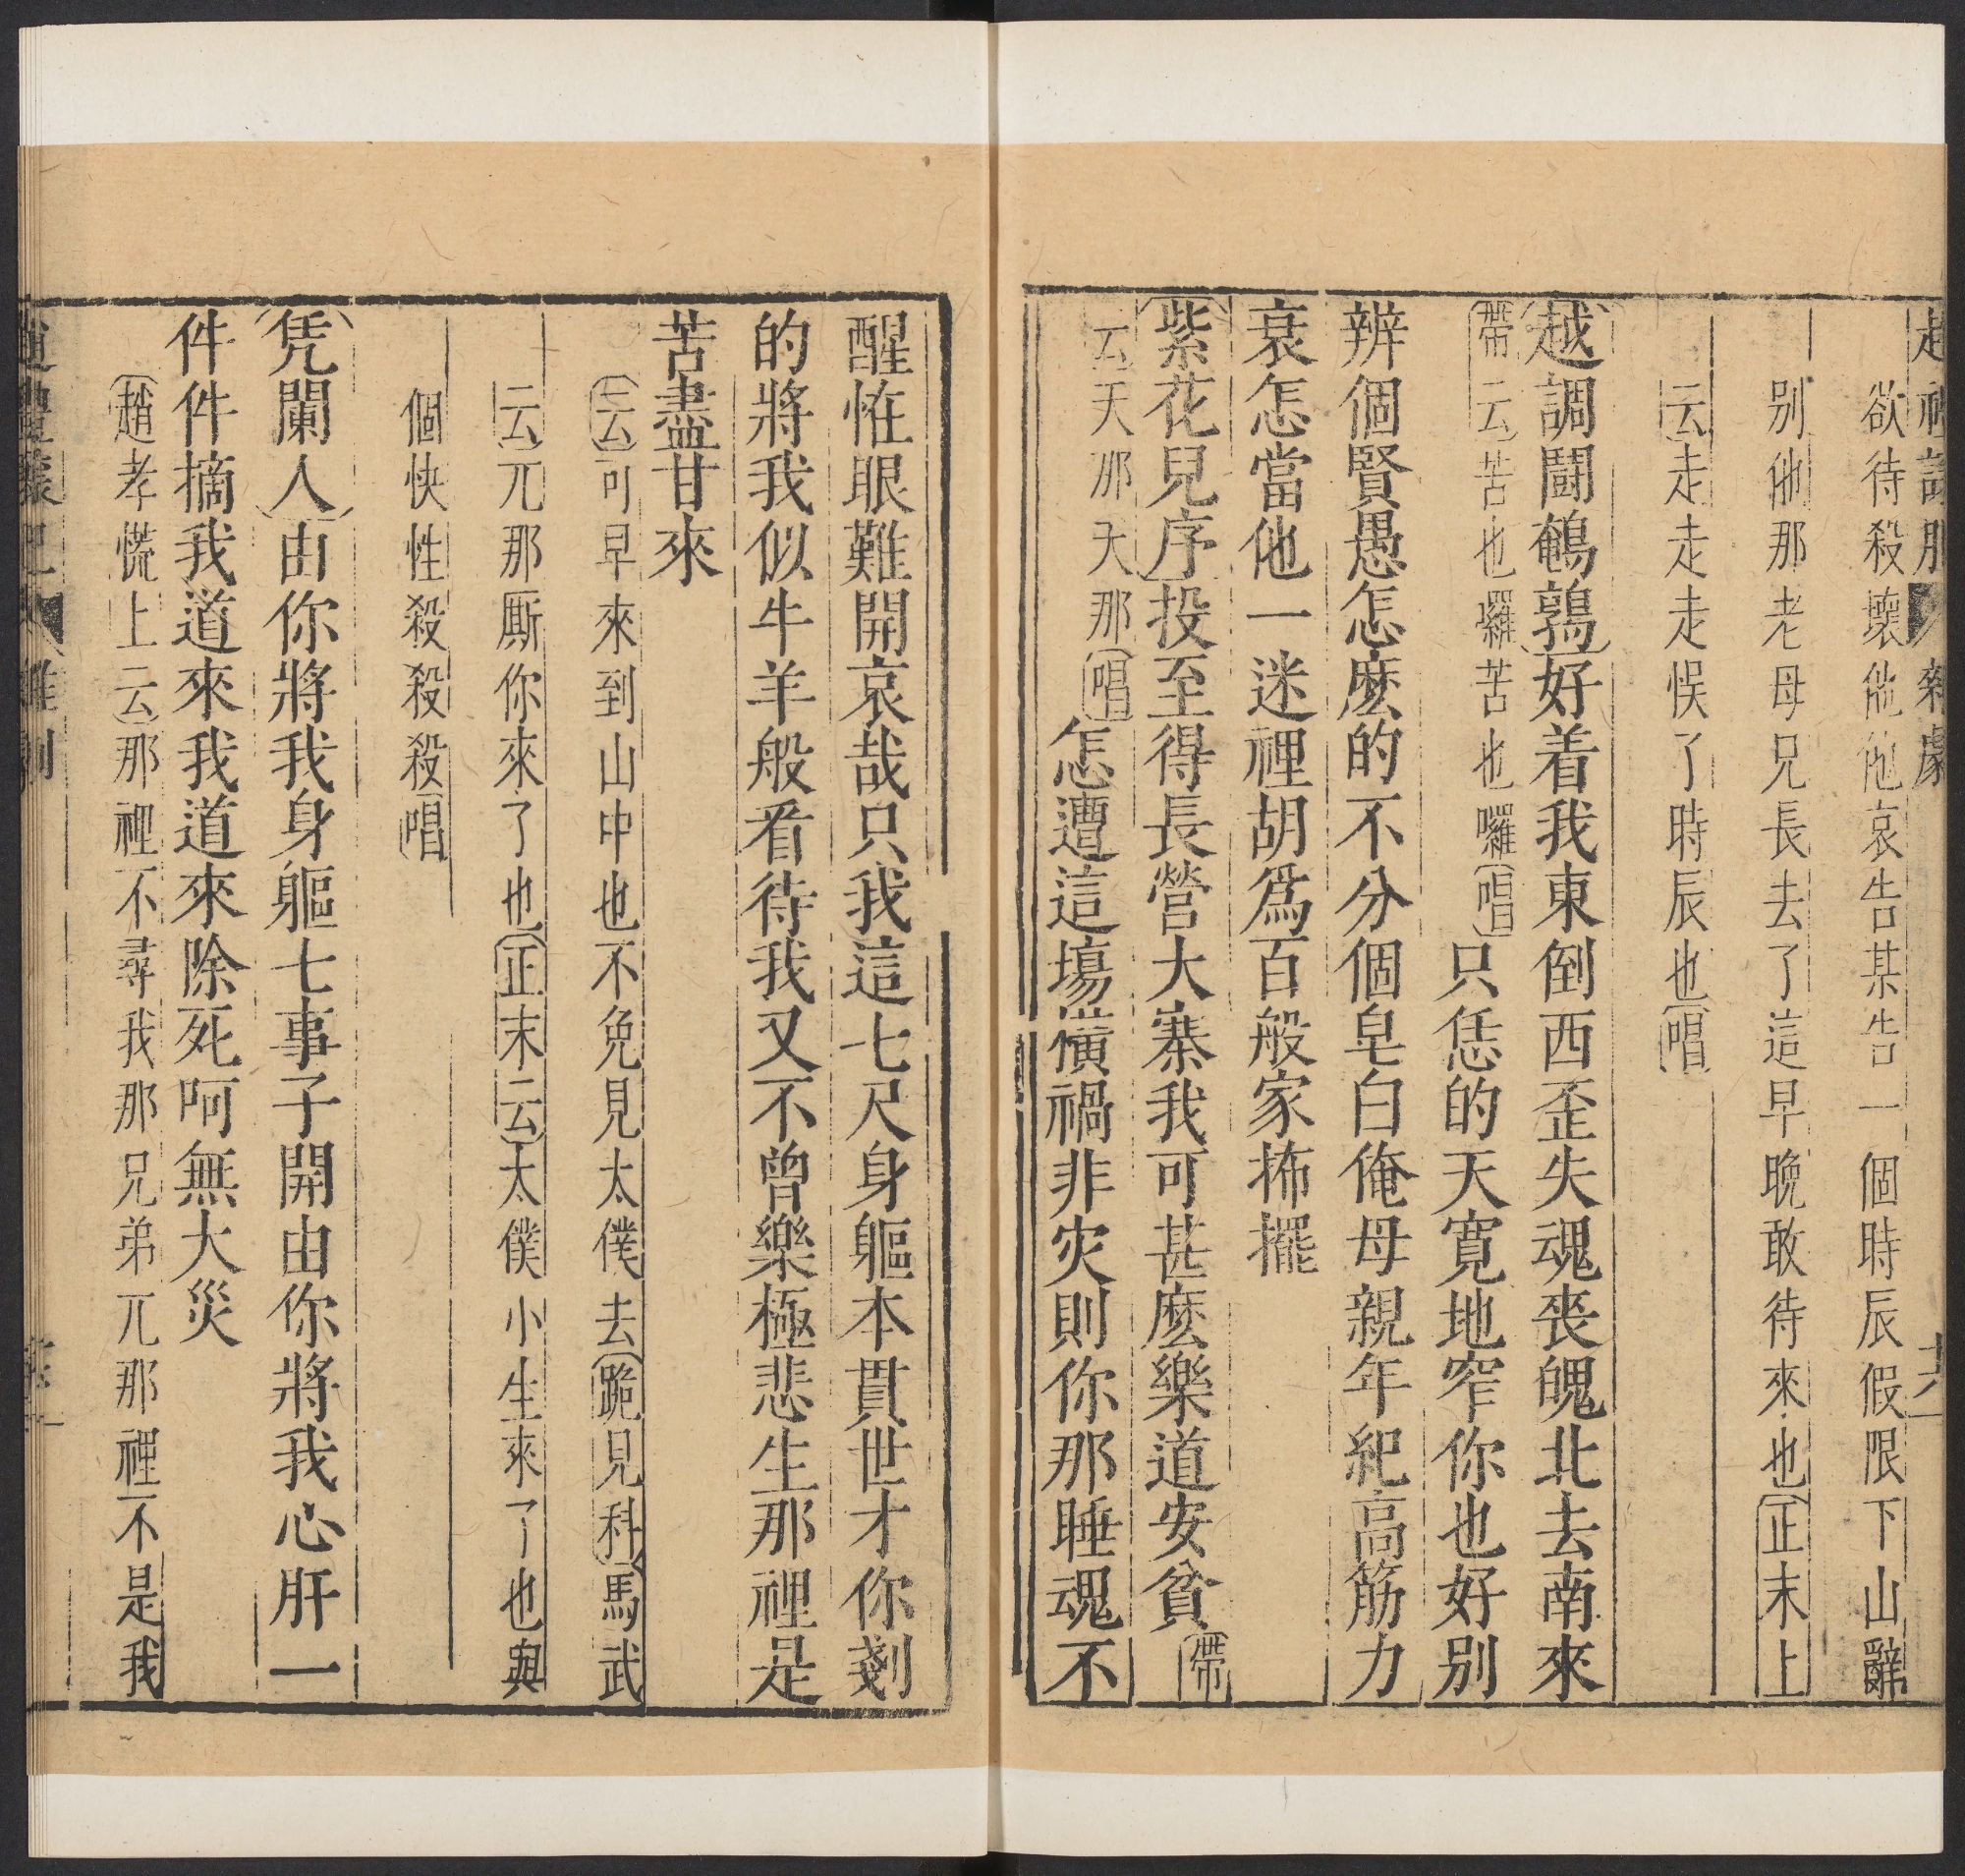 欲待殺壞他他哀告某告一個時辰假限下山辭
别他那老母兄長去了這早晚敢待來也正末上
云走走走悞了時辰也唱
越調鬪鵪鶉好着我東倒西歪失魂喪魄北去南來
帶云苦也囉苦也囉唱只恁的天寛地窄你也好别
辨個賢愚怎麽的不分個皂白俺母親年紀高筋力
衰怎當他一迷裡胡爲百般家擺
紫花兒序投至得長營大寨我可甚麽樂道安貧帶
云天那天那唱怎遭這塲橫禍非灾則你那睡魂不
醒恠眼難開哀哉只我這七尺身軀本貫世才你剗
的將我似牛羊般看待我又不曾樂極悲生那裡是
苦盡甘來
云可早來到山中也不免見太僕去跪見科馬武
云兀那厮你來了也正末云太僕小生來了也與
個快性殺殺殺唱
凭闌人由你將我身軀七事子開由你將我心肝一
件件摘我道來我道來除死呵無大災
趙孝慌上云那裡不尋我那兄弟兀那裡不是我